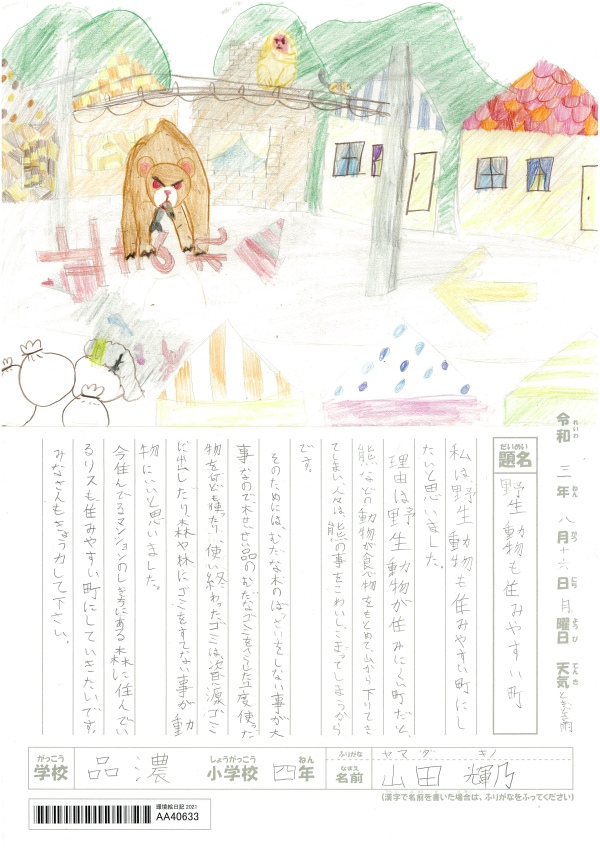 令和 三年 八月十六日 月曜日 天気 ときどき雨
れいわ ねん がつ にち ようび てんき
だいめい
題名
野生動物も住みやすい町
私は野生動物も住みやすい町にし
たいと思いました。
理由は野生動物が住みにくい町だと、
熊などの動物が食べ物をもとめて、山から下りてき
てしまい、人々は、熊の事をこわいしこまってしまうから
です。
そのためには、むだな木のばっさいをしない事が大
事なので、木せい品のむだなゴミをへらしたり一度使った
物を何ども使ったり、使い終わったゴミは、資源ゴミ
に出したり森や林にゴミをすてない事が動
物にいいと思いました。
今住んでるマンションのしき地にある森に住んでい
るリスも住みやすい町にしていきたいです。
みなさんもきょう力して下さい。
がっこう しょうがっこう ねん
学校 品濃 小学校 四年
ふりがな ヤマ ダ キノ
なまえ
名前 山田 輝乃
(漢字で名前を書いた場合は、ふりがなをふってください)
環境絵日記 2021
AA40633